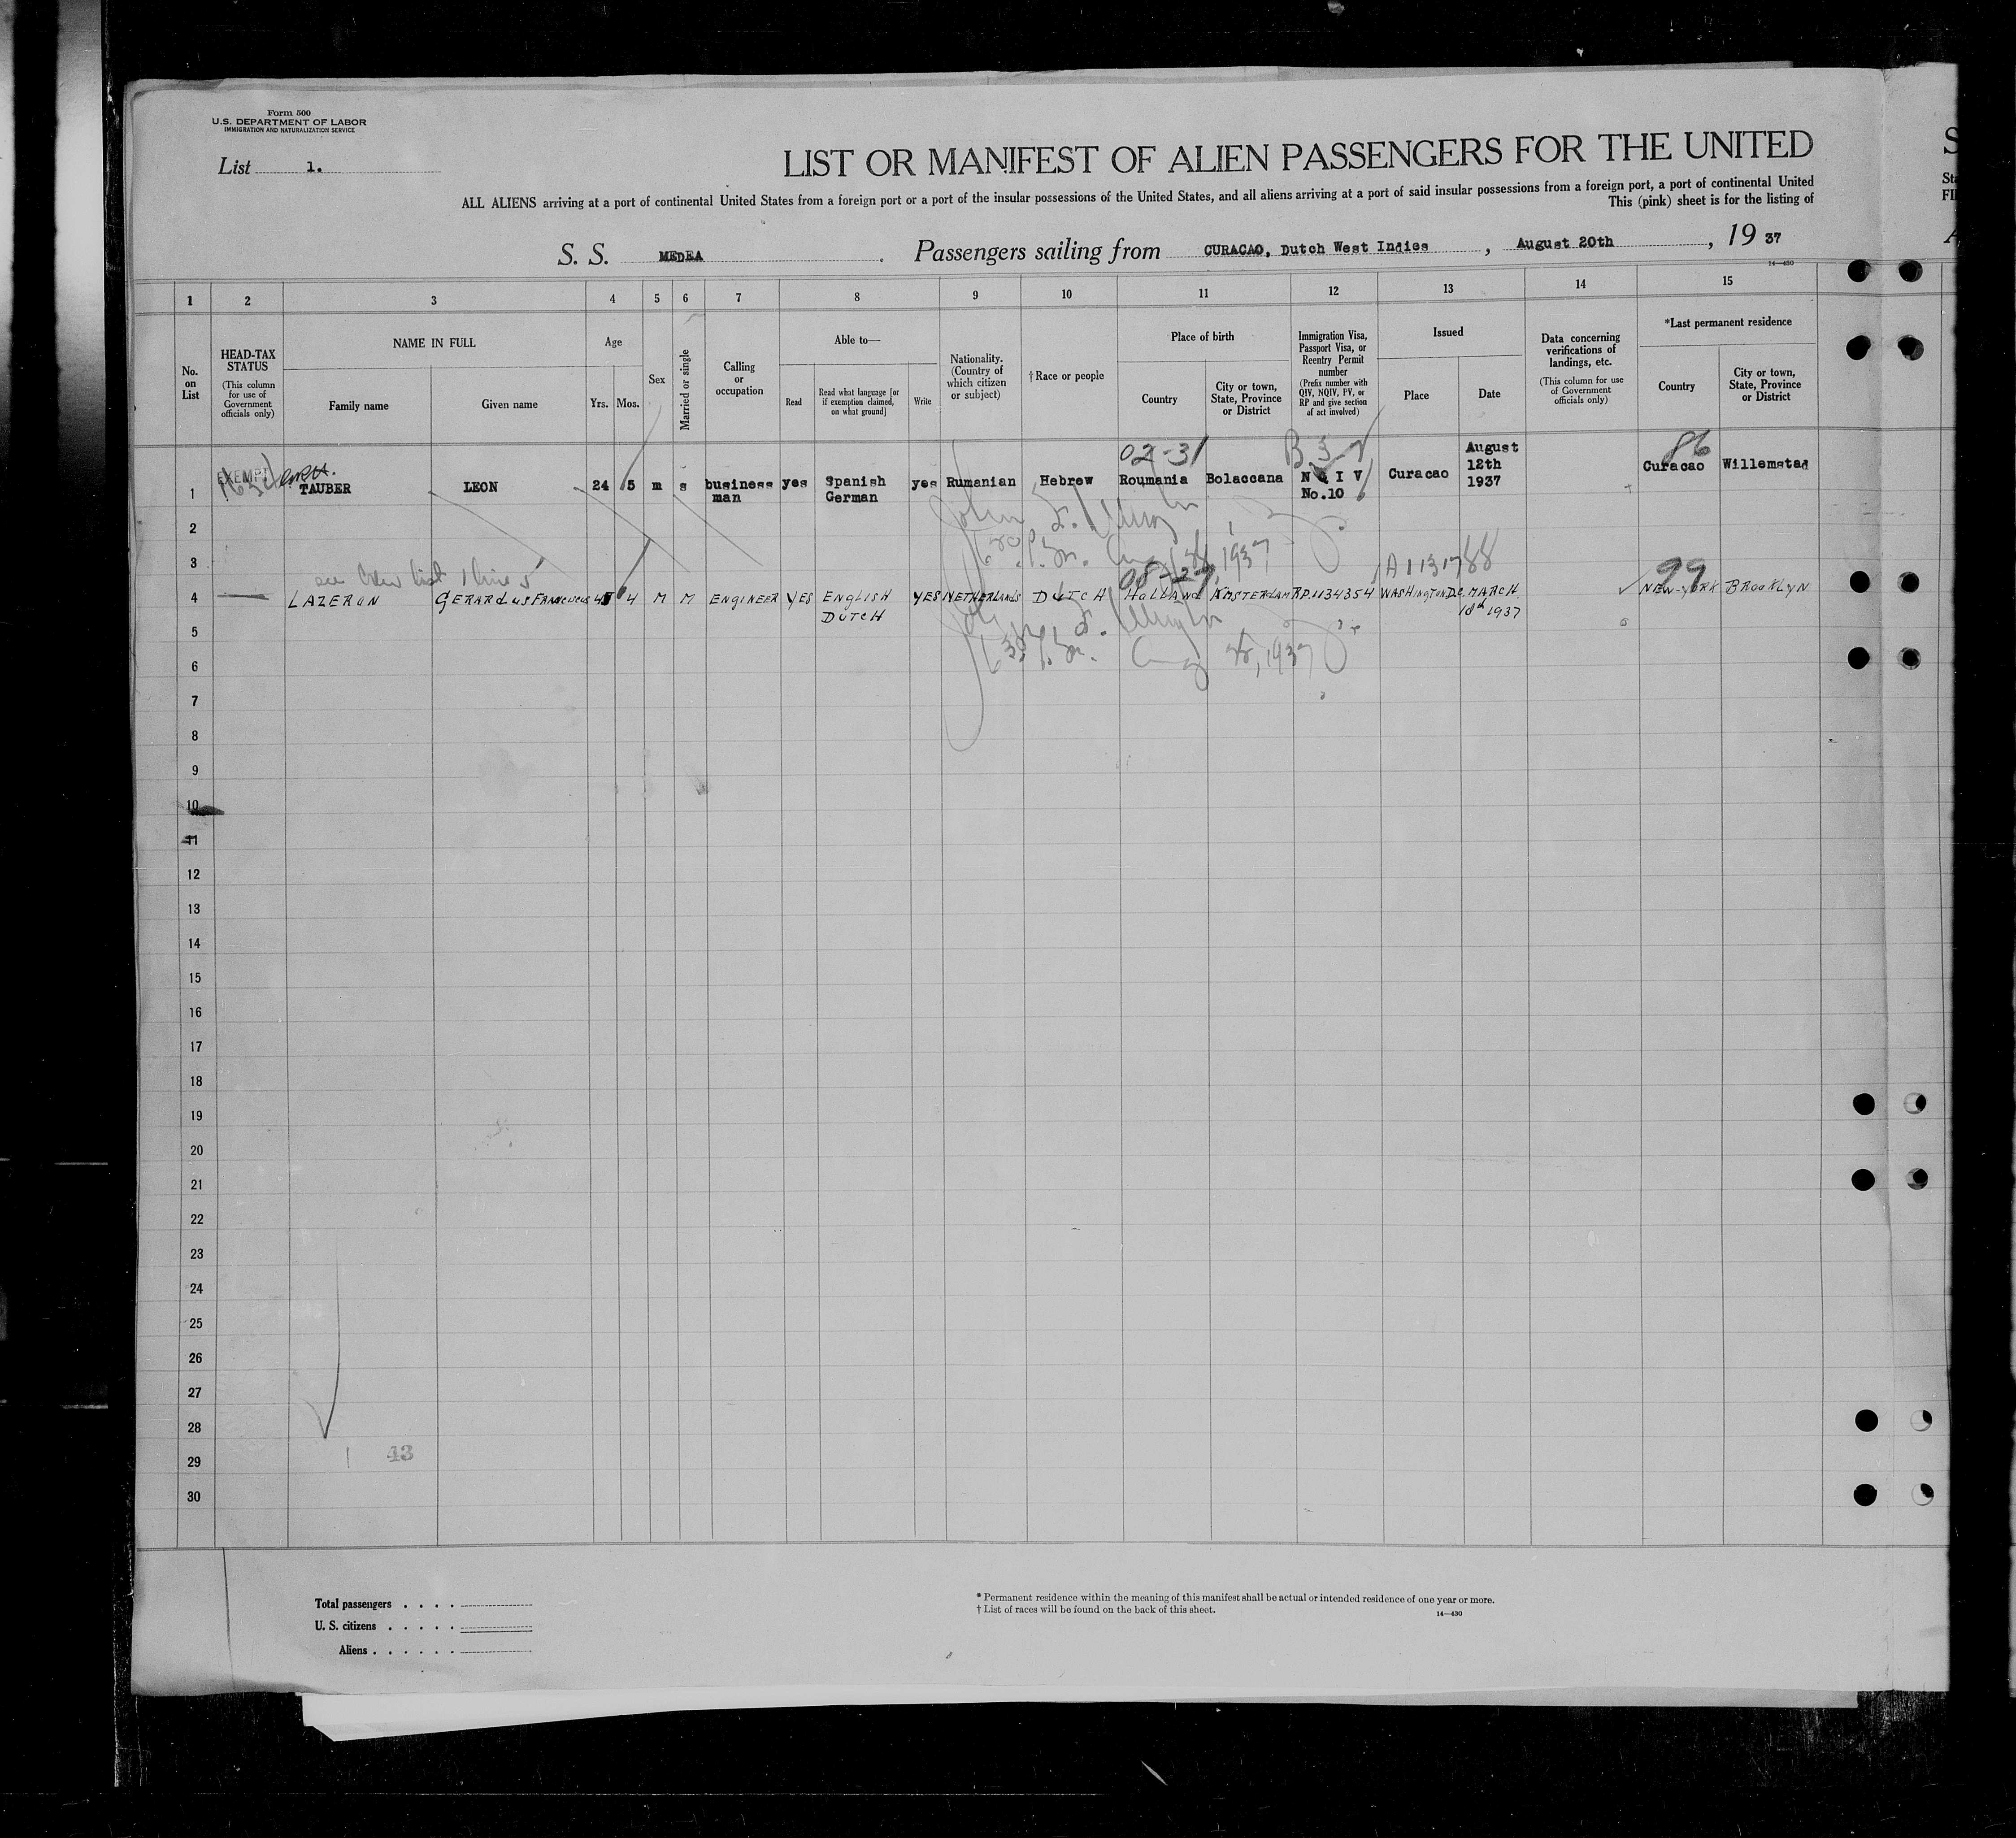 Form 500
U.S. DEPARTMENT OF LABOR
IMMIGRATION AND NATURALIZATION SERVICE
List 1.
LIST OR MANIFEST OF ALIEN PASSENGERS FOR THE UNITED
S
ALL ALIENS arriving at a port of continental United States from a foreign port or a port of the insular possessions of the United States, and all aliens arriving at a port of said insular possessions from a foreign port, a port of continental United
This (pink) sheet is for the listing of
S. S. MEDEA. Passengers sailing from CURACAO, Dutch West Indies, August 20th, 19 37
14—430
1 2 3 4 5 6 7 8 9 10 11 12 13 14 15
No. on List
HEAD-TAX STATUS
(This column for use of Government officials only)
NAME IN FULL
Family name
Given name
Age
Yrs.
Mos.
Sex
Married or single
Calling or occupation
Able to—
Read
Read what language [or if exemption claimed, on what ground]
Write
Nationality. (Country of which citizen or subject)
†Race or people
Place of birth
Country
City or town, State, Province or District
Immigration Visa, Passport Visa, or Reentry Permit number
(Prefix number with QIV, NQIV, PV, or RP and give section of act involved)
Issued
Place
Date
Data concerning verifications of landings, etc.
(This column for use of Government officials only)
*Last permanent residence
Country
City or town, State, Province or District
02-31 B 3-2 86
1 EXEMPT TAUBER LEON 24 5 m s business man yes Spanish German yes Rumanian Hebrew Roumania Bolaccana N Q I V No.10 Curacao August 12th 1937 Curacao Willemstad
2
John
3 Aug 1937
see Crew list 1 line 5 A113788 99
4 LAZERON GERARdUS FRANCISCUS 4 M M ENGINEER YES ENGLISH DUTCH YES NETHERLANDS DUTCH HOLLAND AMSTERDAM R.P.1134354 WASHINGTON D.C. MARCH 1937 NEW-YORK BROOKLYN
5
6 Aug 1937
7
8
9
10
11
12
13
14
15
16
17
18
19
20
21
22
23
24
25
26
27
28
43
29
30
Total passengers . . . .
U. S. citizens . . . . .
Aliens . . . . . .
* Permanent residence within the meaning of this manifest shall be actual or intended residence of one year or more.
† List of races will be found on the back of this sheet.
14—430